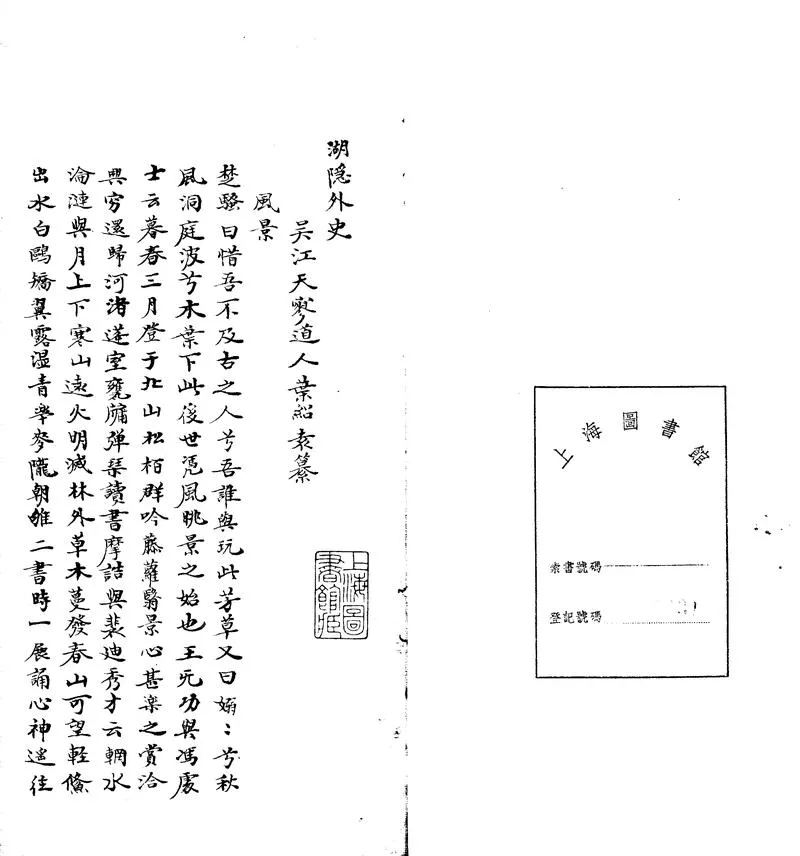 上海圖書館
索書號碼
登記號碼
湖隱外史
吴江天寥道人葉紹袁纂
上海圖書館藏
風景
楚騷曰惜吾不及古之人兮吾誰與玩此芳草又曰嫋〻兮秋
風洞庭波兮木葉下此後世凴風眺景之始也王无功與馮處
士云暮春三月登于北山松栢群吟藤蘿翳景心甚楽之賞洽
興窮還歸河渚蓬室甕牖弹琹讀書摩詰與裴迪秀才云輞水
淪漣與月上下寒山遠火明滅林外草木蔓發春山可望輕鯈
出水白鷗矯翼露湿青皋麥隴朝雊二書時一展誦心神遥往